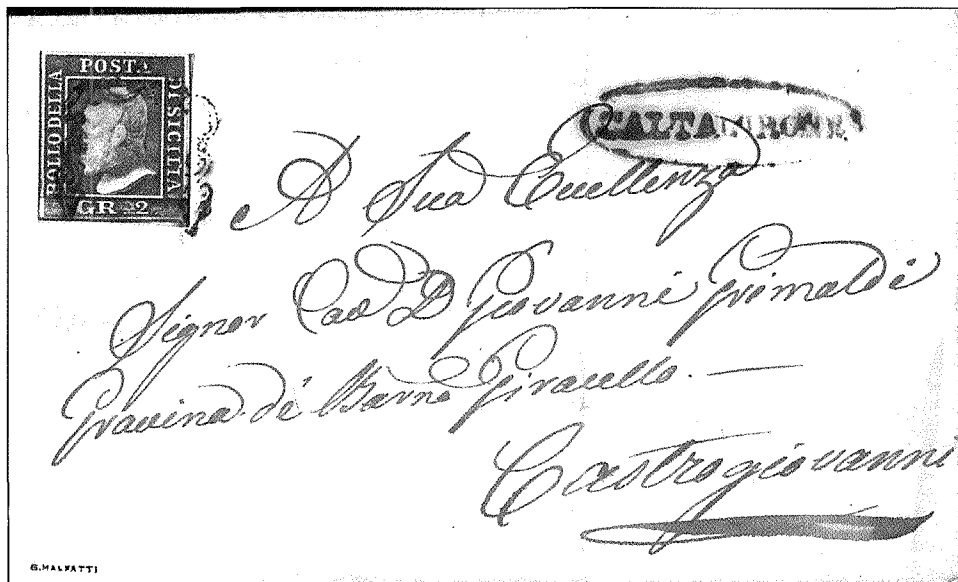 POST.
BOLLO DELLA
DI SICILIA
GR. 2
CALTAGIRONE
A Sua Eccellenza
Signor Cav D Giovanni Grimaldi
Gravina de Giracello. —
Castrogiovanni
G. MALFATTI